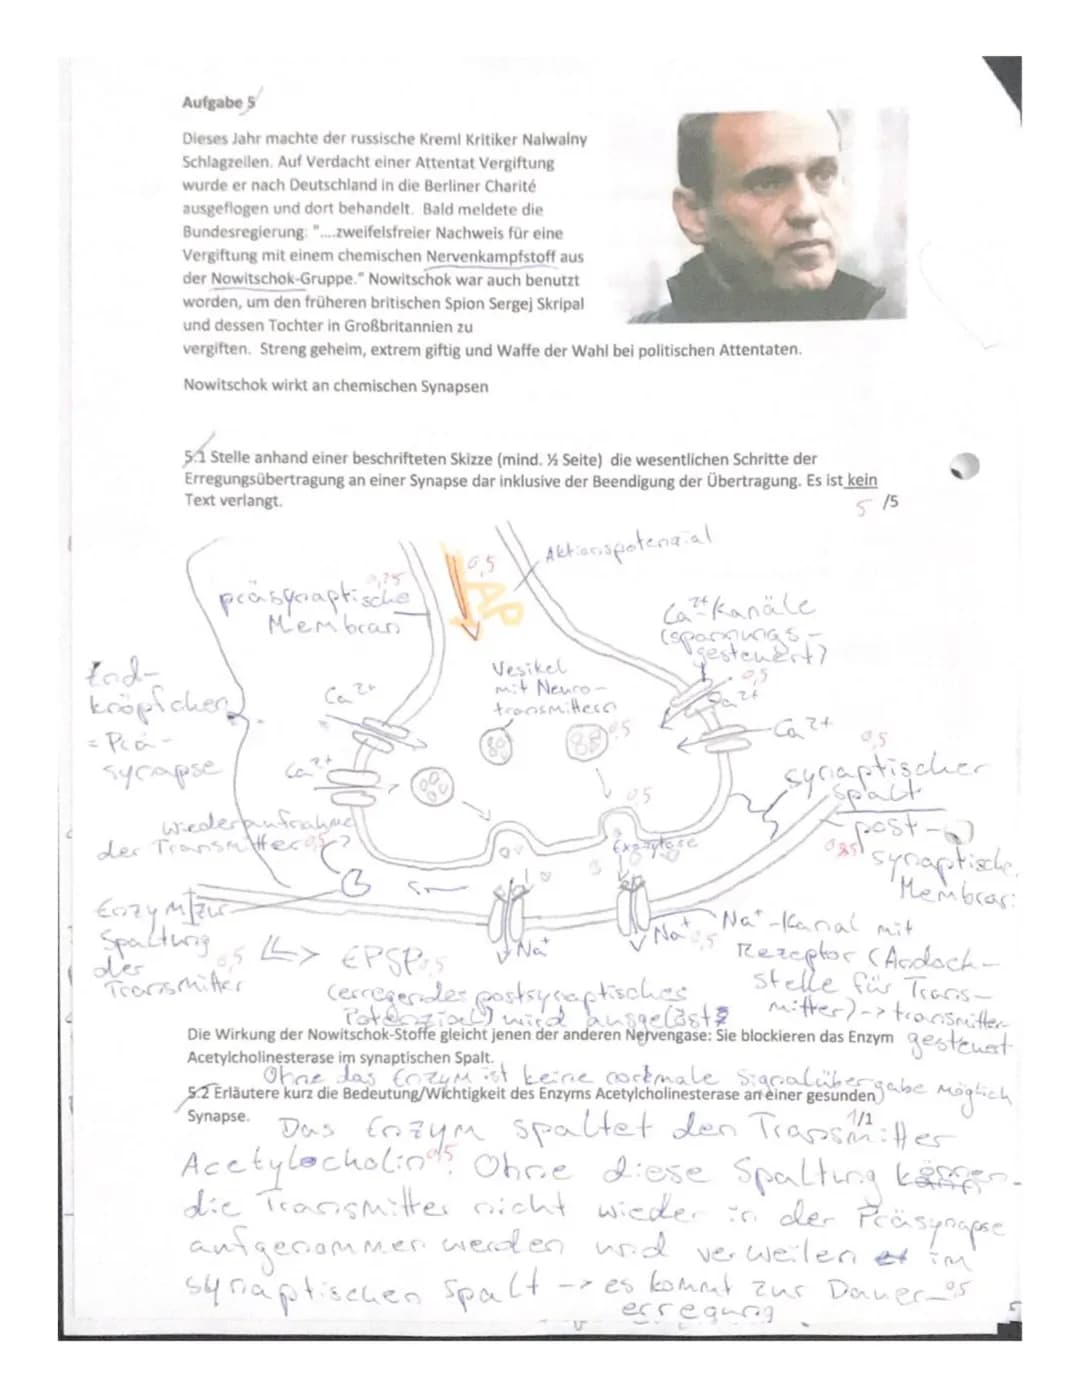 Aufgabe 5
Dieses Jahr machte der russische Kreml Kritiker Nalwalny
Schlagzeilen. Auf Verdacht einer Attentat Vergiftung
wurde er nach Deutschland in die Berliner Charité
ausgeflogen und dort behandelt. Bald meldete die
Bundesregierung: "....zweifelsfreier Nachweis für eine
Vergiftung mit einem chemischen Nervenkampfstoff aus
der Nowitschok-Gruppe." Nowitschok war auch benutzt
worden, um den früheren britischen Spion Sergej Skripal
und dessen Tochter in Großbritannien zu
vergiften. Streng geheim, extrem giftig und Waffe der Wahl bei politischen Attentaten.
Nowitschok wirkt an chemischen Synapsen
5.1 Stelle anhand einer beschrifteten Skizze (mind. ½ Seite) die wesentlichen Schritte der
Erregungsübertragung an einer Synapse dar inklusive der Beendigung der Übertragung. Es ist kein
Text verlangt.
5 /5
Aktionspotenzial
0,5
AP
0,25
präsynaptische
Membran
Ca²⁺Kanäle
(spannungs-
gesteuert)
0,5
End-
köpfchen
= Prä-
synapse
Ca²⁺
Vesikel
mit Neuro-
transmittern
0,5
Ca²⁺
Ca²⁺
Ca²⁺
0,5
synaptischer
Spalt
0,5
Wiederaufnahme
der Transmitter 0,5
Exozytose
post-
0,25 synaptische
Membran
Enzym zur
Spaltung
der
Transmitter
0,5
EPSP 0,5
(erregendes postsynaptisches
Potenzial) wird ausgelöst
Na⁺
Na⁺ 0,5
Na⁺-Kanal mit
Rezeptor (Andock-
stelle für Trans-
mitter) -> transmitter-
gesteuert
Die Wirkung der Nowitschok-Stoffe gleicht jenen der anderen Nervengase: Sie blockieren das Enzym
Acetylcholinesterase im synaptischen Spalt.
Ohne das Enzym ist keine normale Signalübergabe möglich
5.2 Erläutere kurz die Bedeutung/Wichtigkeit des Enzyms Acetylcholinesterase an einer gesunden
Synapse.
1/1
Das Enzym spaltet den Transmitter
Acetylocholin 0,5. Ohne diese Spaltung können
die Transmitter nicht wieder in der Präsynapse
aufgenommen werden und verweilen im
synaptischen Spalt -> es kommt zur Dauer- 0,5
erregung